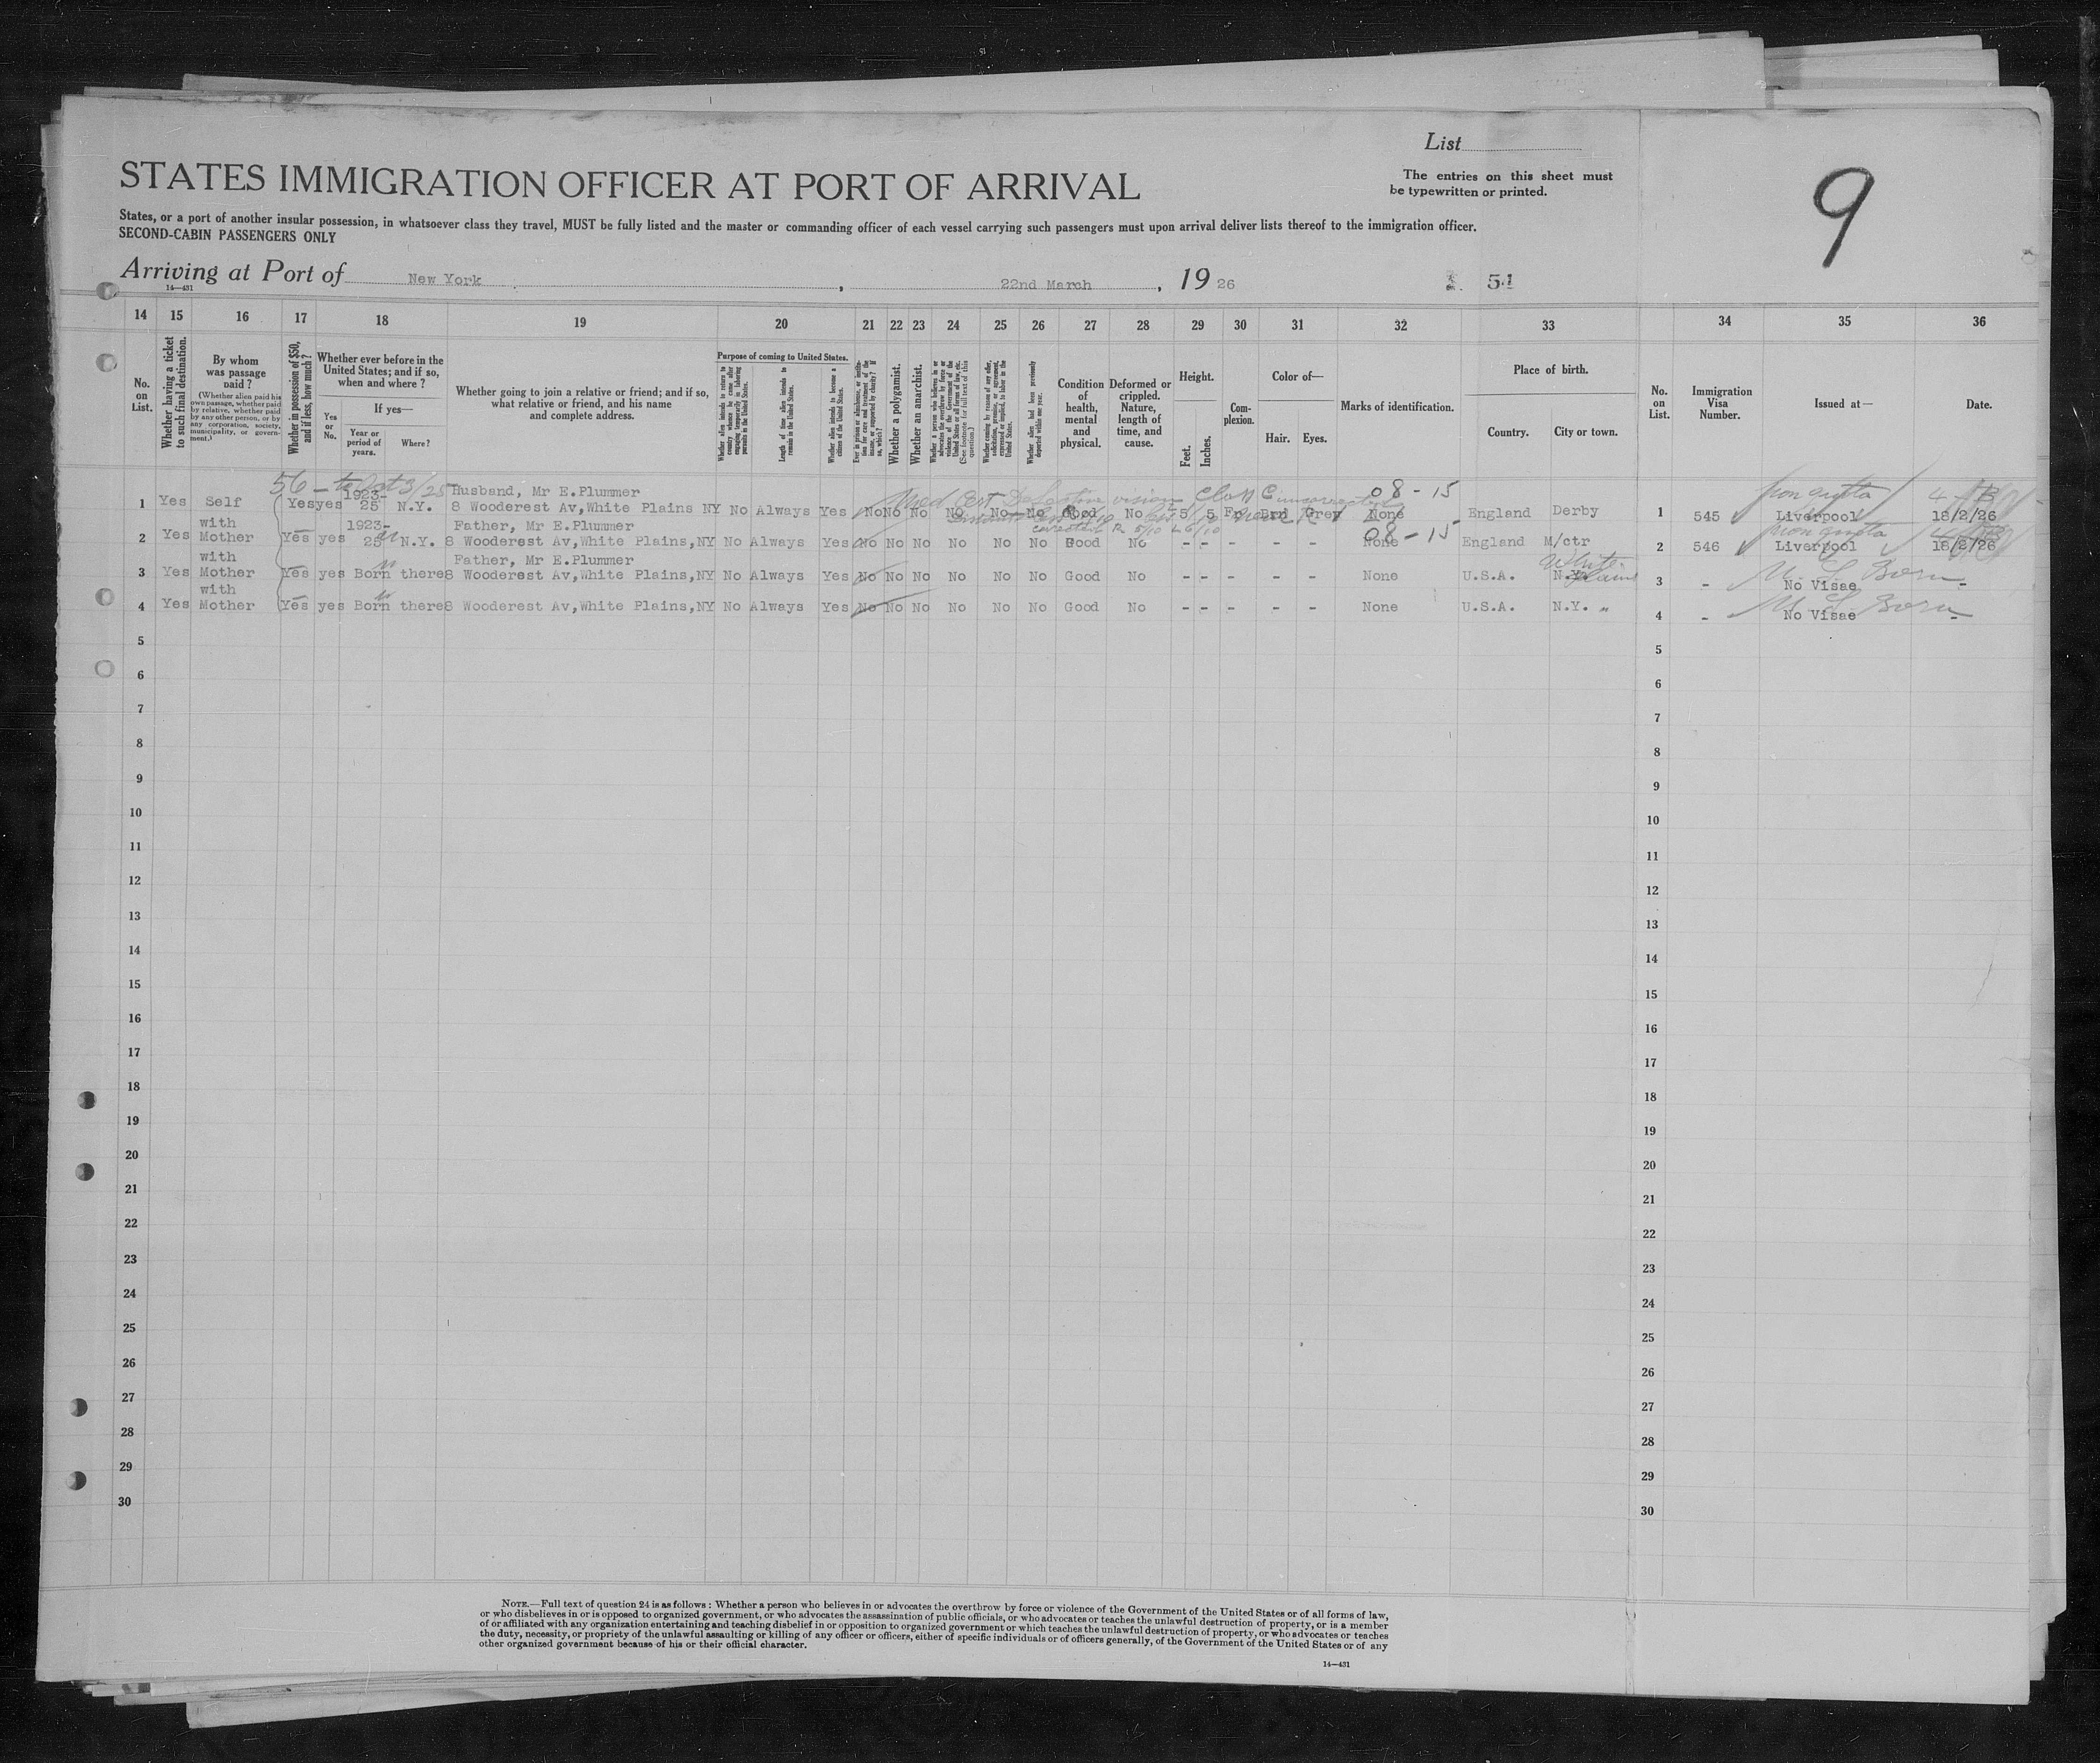 List
STATES IMMIGRATION OFFICER AT PORT OF ARRIVAL
The entries on this sheet must
be typewritten or printed.
9
States, or a port of another insular possession, in whatsoever class they travel, MUST be fully listed and the master or commanding officer of each vessel carrying such passengers must upon arrival deliver lists thereof to the immigration officer.
SECOND-CABIN PASSENGERS ONLY
Arriving at Port of New York, 22nd March, 19 26 51
14—431
14 15 16 17 18 19 20 21 22 23 24 25 26 27 28 29 30 31 32 33 34 35 36
No. on List.
Whether having a ticket to such final destination.
By whom was passage paid?
(Whether alien paid his own passage, whether paid by relative, whether paid by any other person, or by any corporation, society, municipality, or government.)
Whether in possession of $50, and if less, how much?
Whether ever before in the United States; and if so, when and where?
Yes or No.
If yes—
Year or period of years.
Where?
Whether going to join a relative or friend; and if so, what relative or friend, and his name and complete address.
Purpose of coming to United States.
Whether alien intends to return to country whence he came after engaging temporarily in laboring pursuits in the United States.
Length of time alien intends to remain in the United States.
Whether alien intends to become a citizen of the United States.
Ever in prison or almshouse, or institution for care and treatment of the insane, or supported by charity? If so, which?
Whether a polygamist.
Whether an anarchist.
Whether a person who believes in or advocates the overthrow by force or violence of the Government of the United States or all forms of law, etc. (See footnote for full text of this question.)
Whether coming by reason of any offer, solicitation, promise, or agreement, expressed or implied, to labor in the United States.
Whether alien had been previously deported within one year.
Condition of health, mental and physical.
Deformed or crippled. Nature, length of time, and cause.
Height.
Feet. Inches.
Complexion.
Color of—
Hair. Eyes.
Marks of identification.
Place of birth.
Country. City or town.
No. on List.
Immigration Visa Number.
Issued at—
Date.
56 - to Oct 3/25
Med Cert Defective vision Class C uncorrected
08-15
non quota 4-
Husband, Mr E.Plummer
1 Yes Self Yes yes 1923-25 N.Y. 8 Wooderest Av,White Plains NY No Always Yes No No No No No No Good No 5 5 Fr Brn Grey None England Derby 1 545 Liverpool 18/2/26
R 5/10 L 6/10
08-15
non quota
Father, Mr E.Plummer
2 Yes with Mother Yes yes 1923-25 N.Y. 8 Wooderest Av,White Plains,NY No Always Yes No No No No No No Good No - - - - - None England M/ctr 2 546 Liverpool 18/2/26
White Plains
U.S. Born
Father, Mr E.Plummer
3 Yes with Mother Yes yes Born there 8 Wooderest Av,White Plains,NY No Always Yes No No No No No No Good No - - - - - None U.S.A. N.Y. 3 - No Visae -
U.S. Born
4 Yes with Mother Yes yes Born there 8 Wooderest Av,White Plains,NY No Always Yes No No No No No No Good No - - - - - None U.S.A. N.Y. " 4 - No Visae -
5 5
6 6
7 7
8 8
9 9
10 10
11 11
12 12
13 13
14 14
15 15
16 16
17 17
18 18
19 19
20 20
21 21
22 22
23 23
24 24
25 25
26 26
27 27
28 28
29 29
30 30
NOTE.—Full text of question 24 is as follows: Whether a person who believes in or advocates the overthrow by force or violence of the Government of the United States or of all forms of law,
or who disbelieves in or is opposed to organized government, or who advocates the assassination of public officials, or who advocates or teaches the unlawful destruction of property, or is a member
of or affiliated with any organization entertaining and teaching disbelief in or opposition to organized government or which teaches the unlawful destruction of property, or who advocates or teaches
the duty, necessity, or propriety of the unlawful assaulting or killing of any officer or officers, either of specific individuals or of officers generally, of the Government of the United States or of any
other organized government because of his or their official character.
14—431